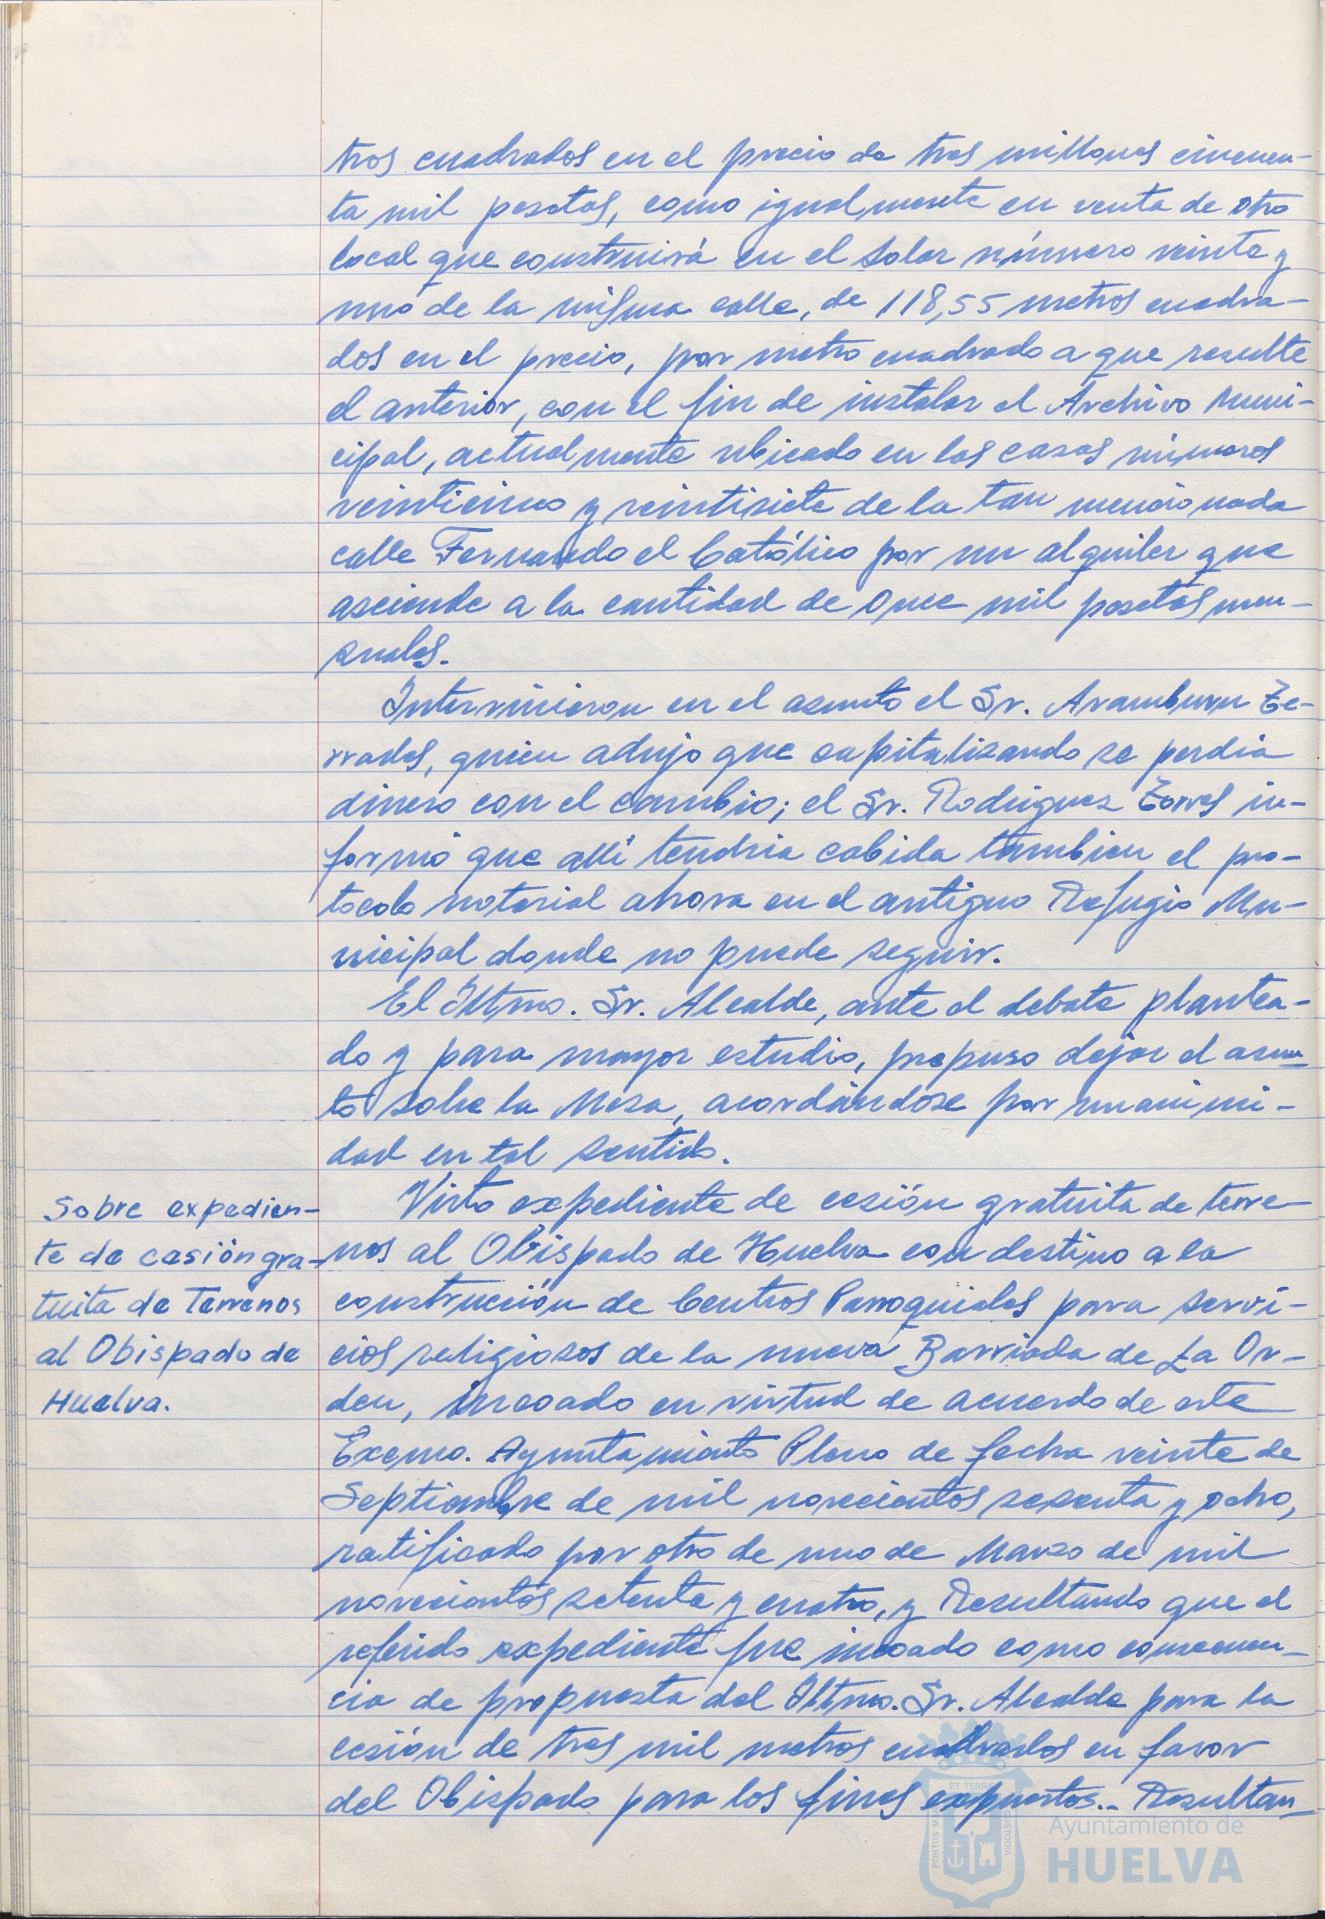 tros cuadrados en el precio de tres millones cincuen-
ta mil pesetas, como igualmente en venta de otro
local que construirá en el solar número veinte y
uno de la misma calle, de 118,55 metros cuadra-
dos en el precio, por metro cuadrado a que resulte
el anterior, con el fin de instalar el Archivo Muni-
cipal, actualmente ubicado en las casas números
veinticinco y veintisiete de la tan mencionada
calle Fernando el Católico por un alquiler que
asciende a la cantidad de once mil pesetas men-
suales.
Intervinieron en el asunto el Sr. Aramburu Te-
rrades, quien adujo que capitalizando se perdia
dinero con el cambio; el Sr. Rodriguez Torres in-
formó que allí tendria cabida tambien el pro-
tocolo notarial ahora en el antiguo Refugio Mu-
nicipal donde no puede seguir.
El Iltmo. Sr. Alcalde, ante el debate plantea-
do y para mayor estudio, propuso dejar el asun-
to sobre la Mesa, acordándose por unanimi-
dad en tal sentido.
Sobre expedien-
te de cesión gra-
tuita de Terrenos
al Obispado de
Huelva.
Visto expediente de cesión gratuita de terre-
nos al Obispado de Huelva con destino a la
construcción de Centros Parroquiales para servi-
cios religiosos de la nueva Barriada de La Or-
den, incoado en virtud de acuerdo de este
Excmo. Ayuntamiento Pleno de fecha veinte de
Septiembre de mil novecientos sesenta y ocho,
ratificado por otro de uno de Marzo de mil
novecientos setenta y cuatro, y Resultando que el
referido expediente fue incoado como consecuen-
cia de propuesta del Iltmo. Sr. Alcalde para la
cesión de tres mil metros cuadrados en favor
del Obispado para los fines expuestos.- Resultan-
Ayuntamiento de
HUELVA